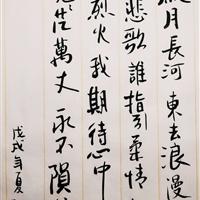 月長河東去浪漫
悲歌誰指引柔情
烈火我期待心中
芒萬丈永不隕
戊戌年夏